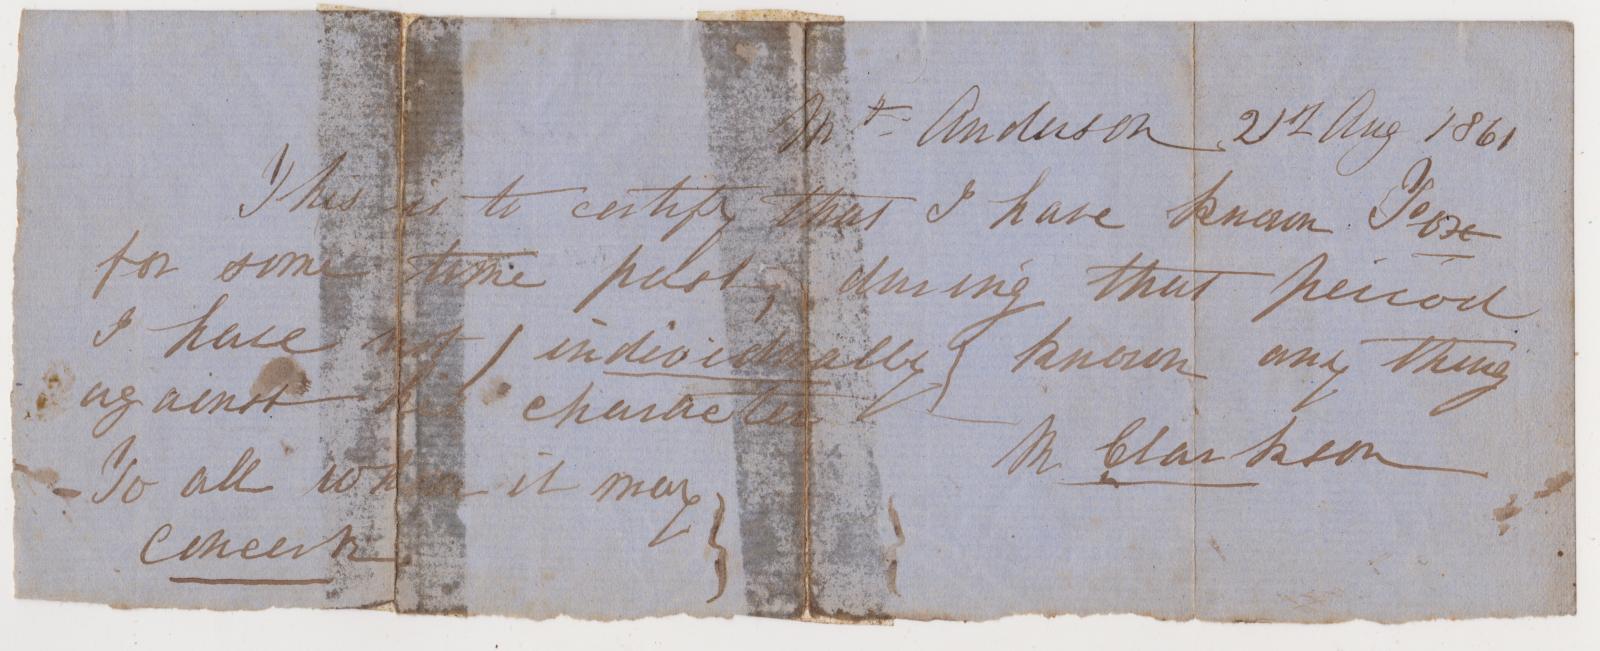 Mt. Anderson 21st Aug 1861
This is to certify that I have known
for some time past, during that period
I have not / individually } known any thing
against his character
M. Clarkson
To all whom it may }
concern